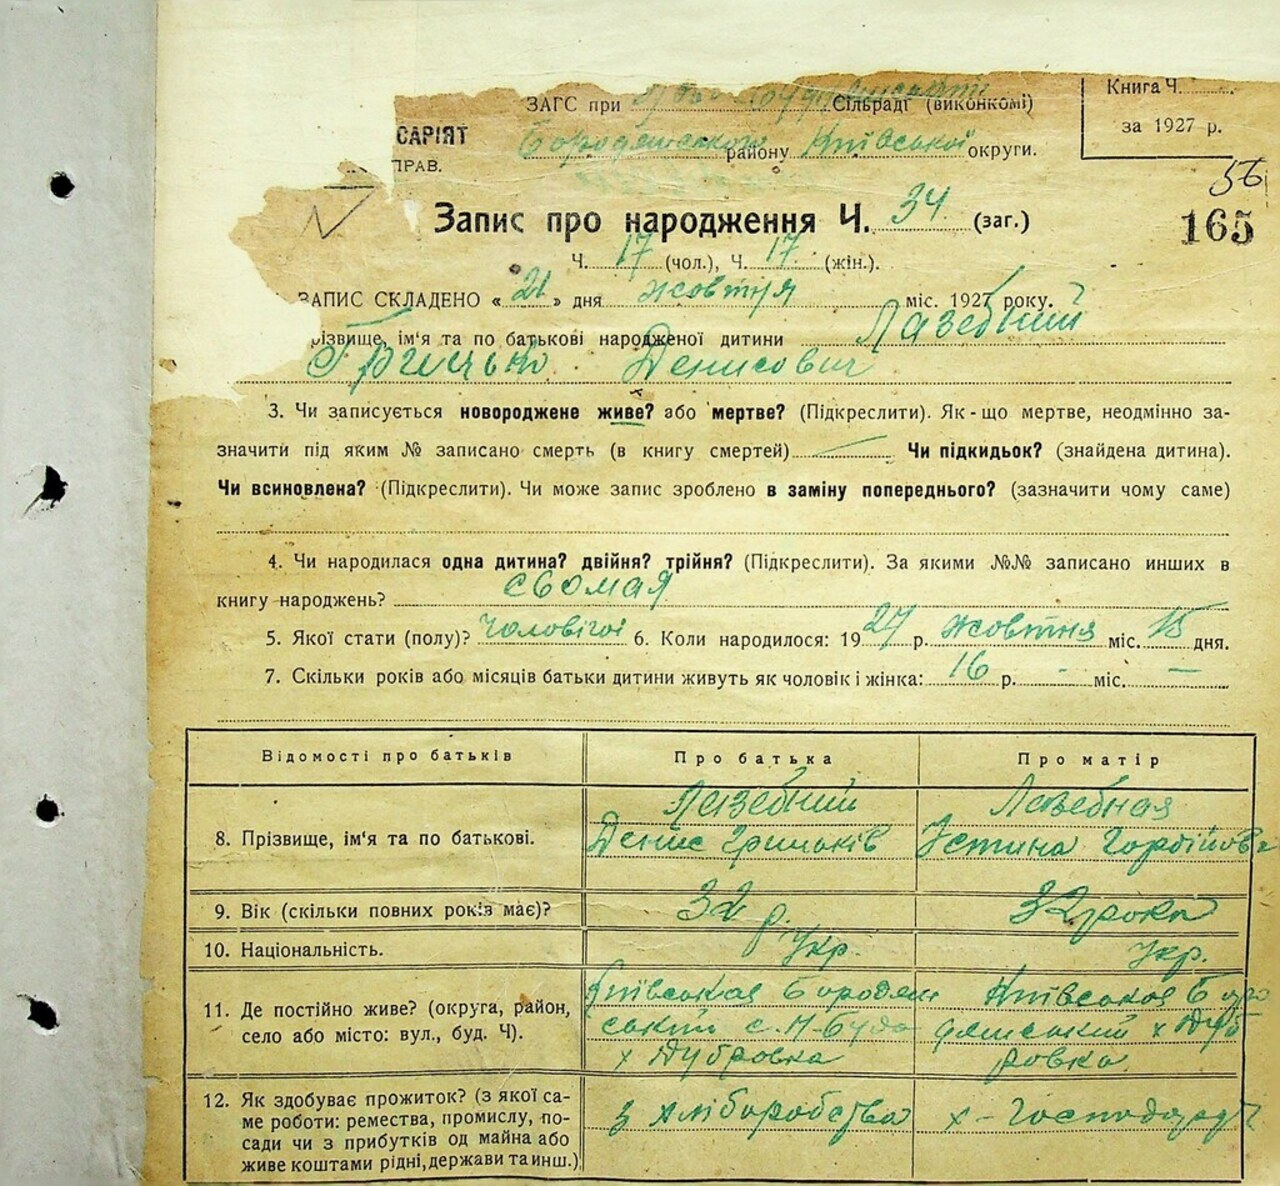 ЗАГС при Сільраді (виконкомі)
Книга Ч.
за 1927 р.
САРІЯТ
ПРАВ.
Бородянського району Київської округи.
56
165
Запис про народження Ч. 34 (заг.)
Ч. 17 (чол.), Ч. 17 (жін.).
ЗАПИС СКЛАДЕНО « 21 » дня жовтня міс. 1927 року.
різвище, ім'я та по батькові народженої дитини Лазебний
Грицько Денисович
3. Чи записується новороджене живе? або мертве? (Підкреслити). Як-що мертве, неодмінно за-
значити під яким № записано смерть (в книгу смертей) Чи підкидьок? (знайдена дитина).
Чи всиновлена? (Підкреслити). Чи може запис зроблено в заміну попереднього? (зазначити чому саме)
4. Чи народилася одна дитина? двійня? трійня? (Підкреслити). За якими №№ записано инших в
книгу народжень? свомая
5. Якої стати (полу)? Чоловічої 6. Коли народилося: 1927 р. жовтня міс. 15 дня.
7. Скільки років або місяців батьки дитини живуть як чоловік і жінка: 16 р. - міс. —
Відомості про батьків Про батька Про матір
8. Прізвище, ім'я та по батькові. Лазебний Лазебная
Денис Грицьків Устина Гордійовна
9. Вік (скільки повних років має)? 32 р. 32 рока
10. Національність. Укр. Укр.
11. Де постійно живе? (округа, район, село або місто: вул., буд. Ч). Київська Бородян Київська Боро
ський с. Н-Буда дянський х Дуб
х Дубровка ровка
12. Як здобуває прожиток? (з якої са-
ме роботи: ремества, промислу, по-
сади чи з прибутків од майна або
живе коштами рідні, держави та инш.) з хліборобства х-Господар